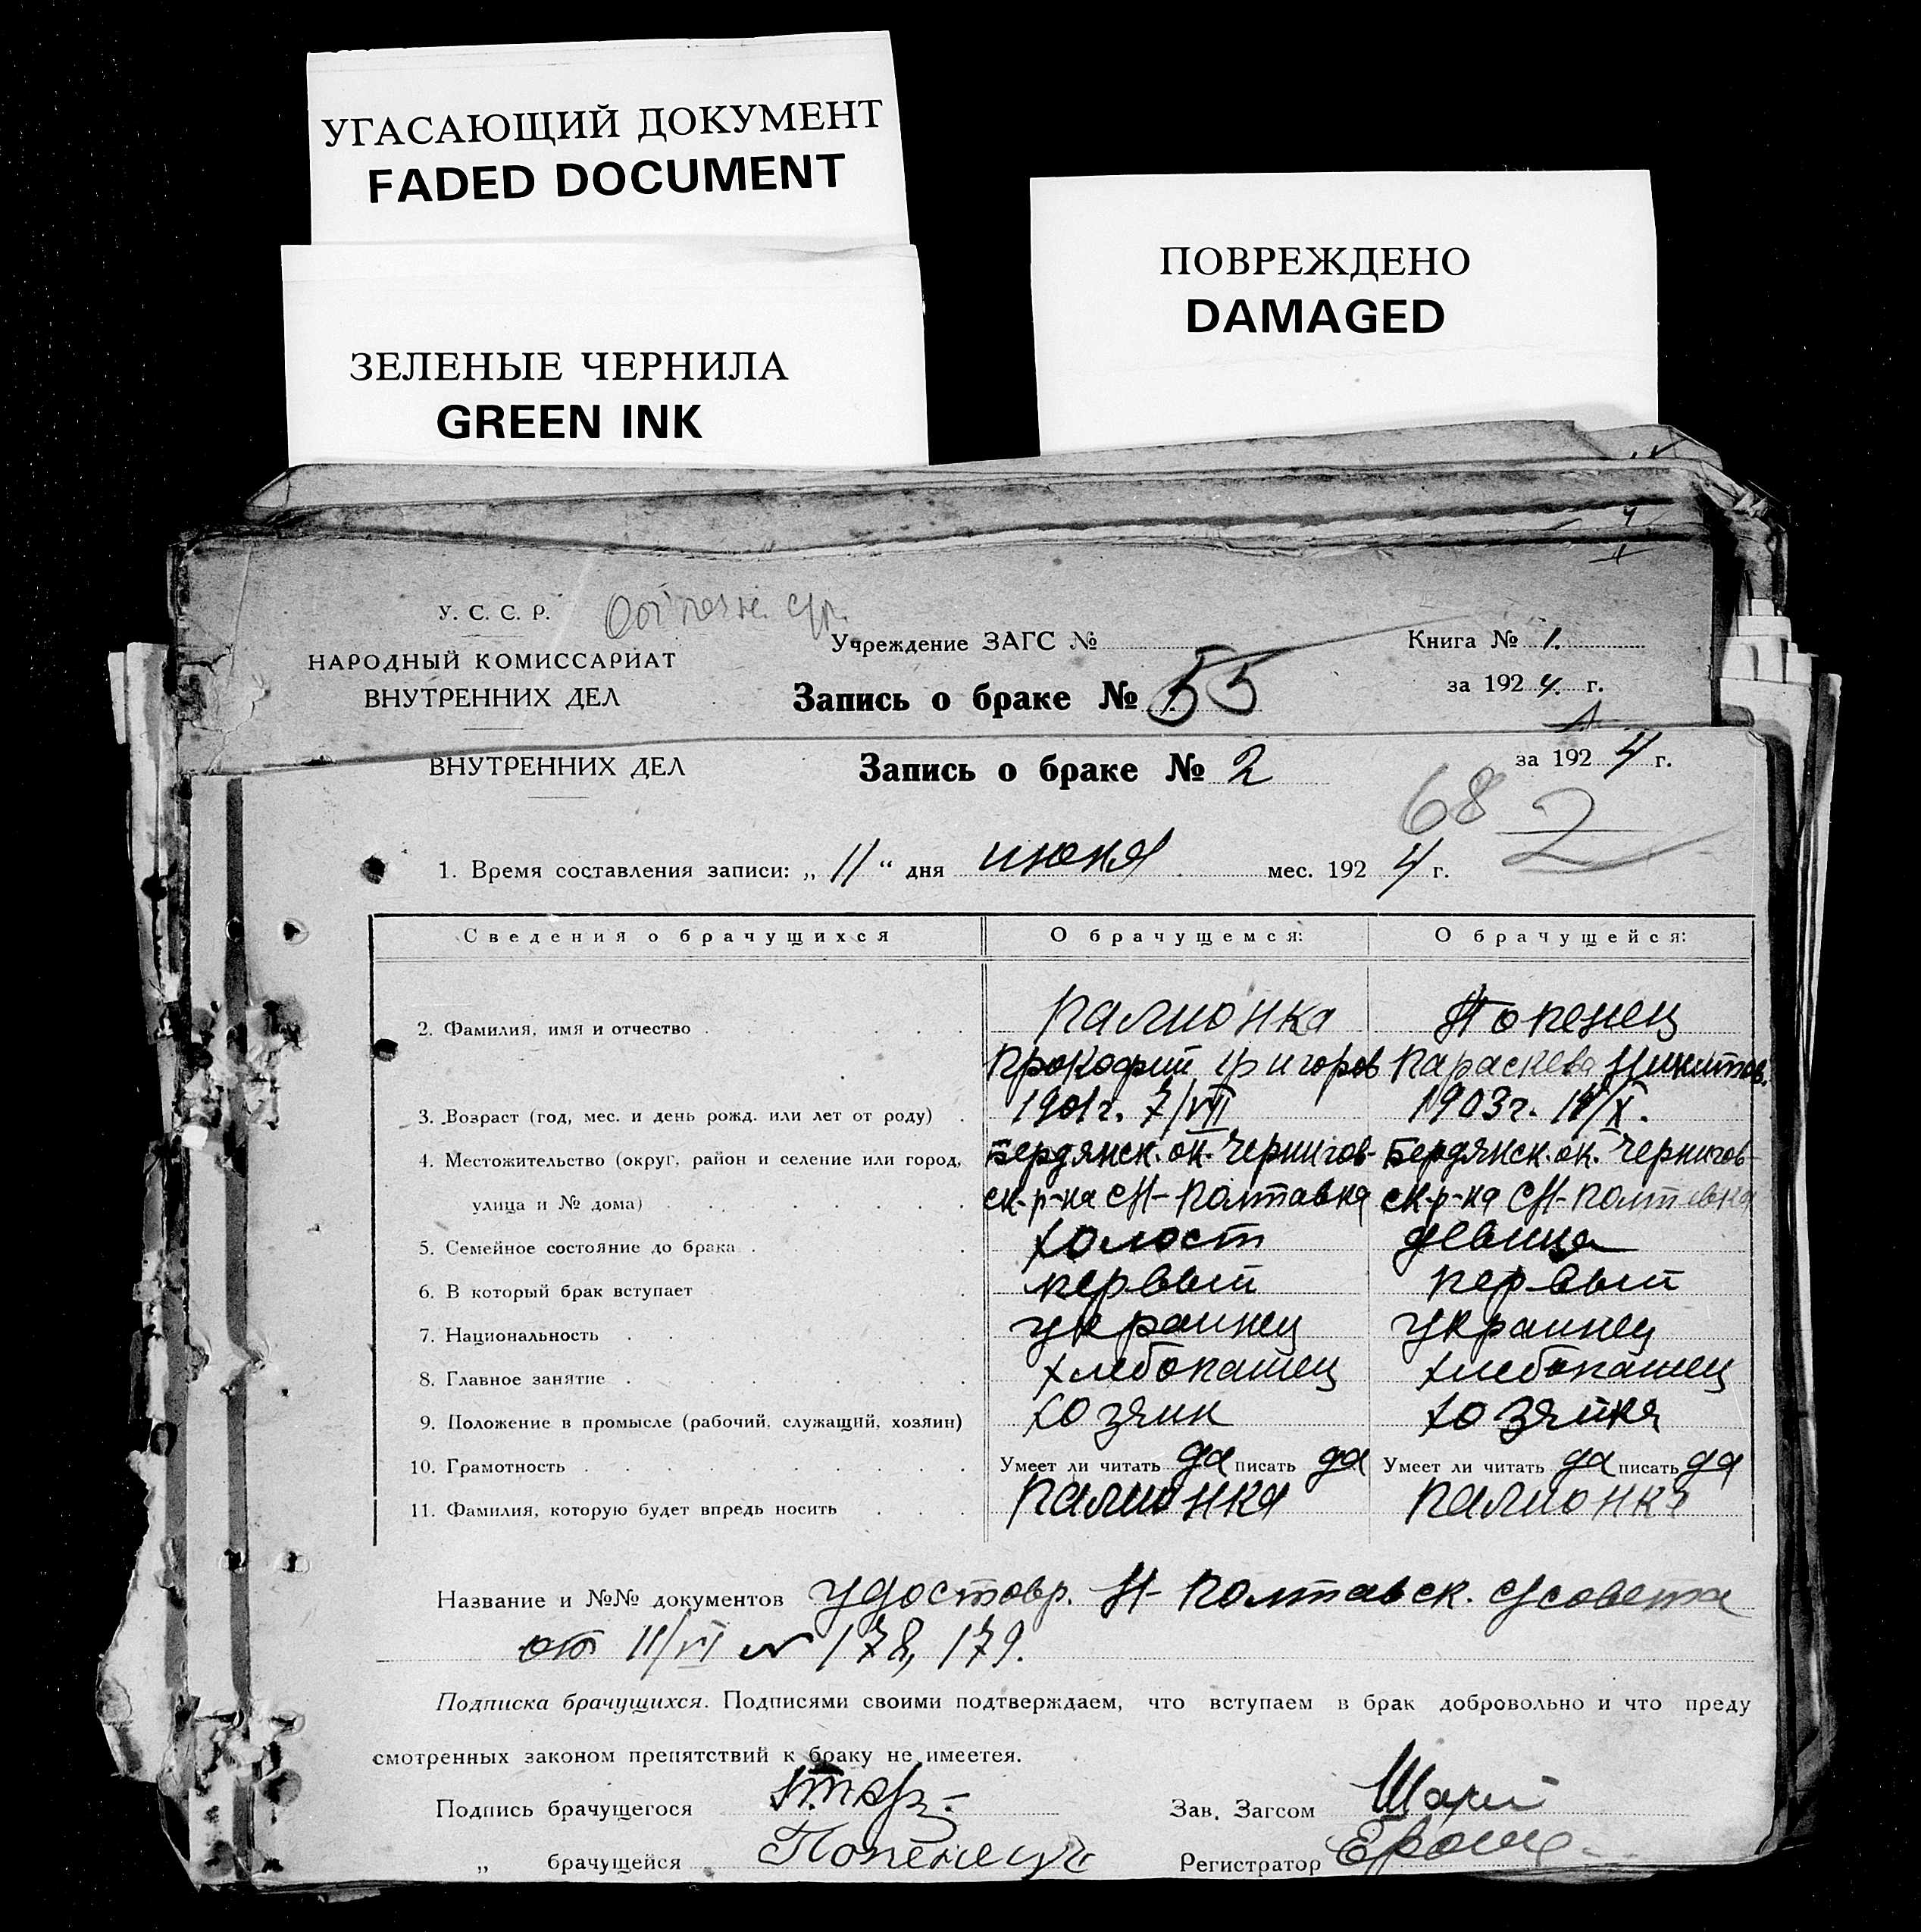 УГАСАЮЩИЙ ДОКУМЕНТ
FADED DOCUMENT
ЗЕЛЕНЫЕ ЧЕРНИЛА
GREEN INK
ПОВРЕЖДЕНО
DAMAGED
У. С. С. Р.
НАРОДНЫЙ КОМИССАРИАТ
ВНУТРЕННИХ ДЕЛ
Учреждение ЗАГС №
Книга № 1.
Запись о браке № 55
за 1924 г.
ВНУТРЕННИХ ДЕЛ
Запись о браке № 2
за 1924 г.
68 2
1. Время составления записи: „ 11 “ дня июня мес. 1924 г.
Сведения о брачущихся О брачущемся: О брачущейся:
2. Фамилия, имя и отчество Палионка Попенец
Прокофий Григоров Параскева Никитов.
3. Возраст (год, мес. и день рожд. или лет от роду) 1901г. 7/VII 1903г. /X.
4. Местожительство (округ, район и селение или город, Бердянск. ок. Чернигов- Бердянск. ок. Чернигов-
улица и № дома) ск. р-на СН-Полтавка ск. р-на СН-Полтавка
5. Семейное состояние до брака холост девица
6. В который брак вступает первый первый
7. Национальность украинец украинец
8. Главное занятие хлебопашец хлебопашец
9. Положение в промысле (рабочий, служащий, хозяин) хозяин хозяйка
10. Грамотность Умеет ли читать да писать да Умеет ли читать да писать да
11. Фамилия, которую будет впредь носить Палионка Палионка
Название и №№ документов удостовр. Н-Полтавск. с/совета
от 11/VI № 178, 179.
Подписка брачущихся. Подписями своими подтверждаем, что вступаем в брак добровольно и что преду
смотренных законом препятствий к браку не имеется.
Подпись брачущегося
Зав. Загсом
„ брачущейся
Регистратор